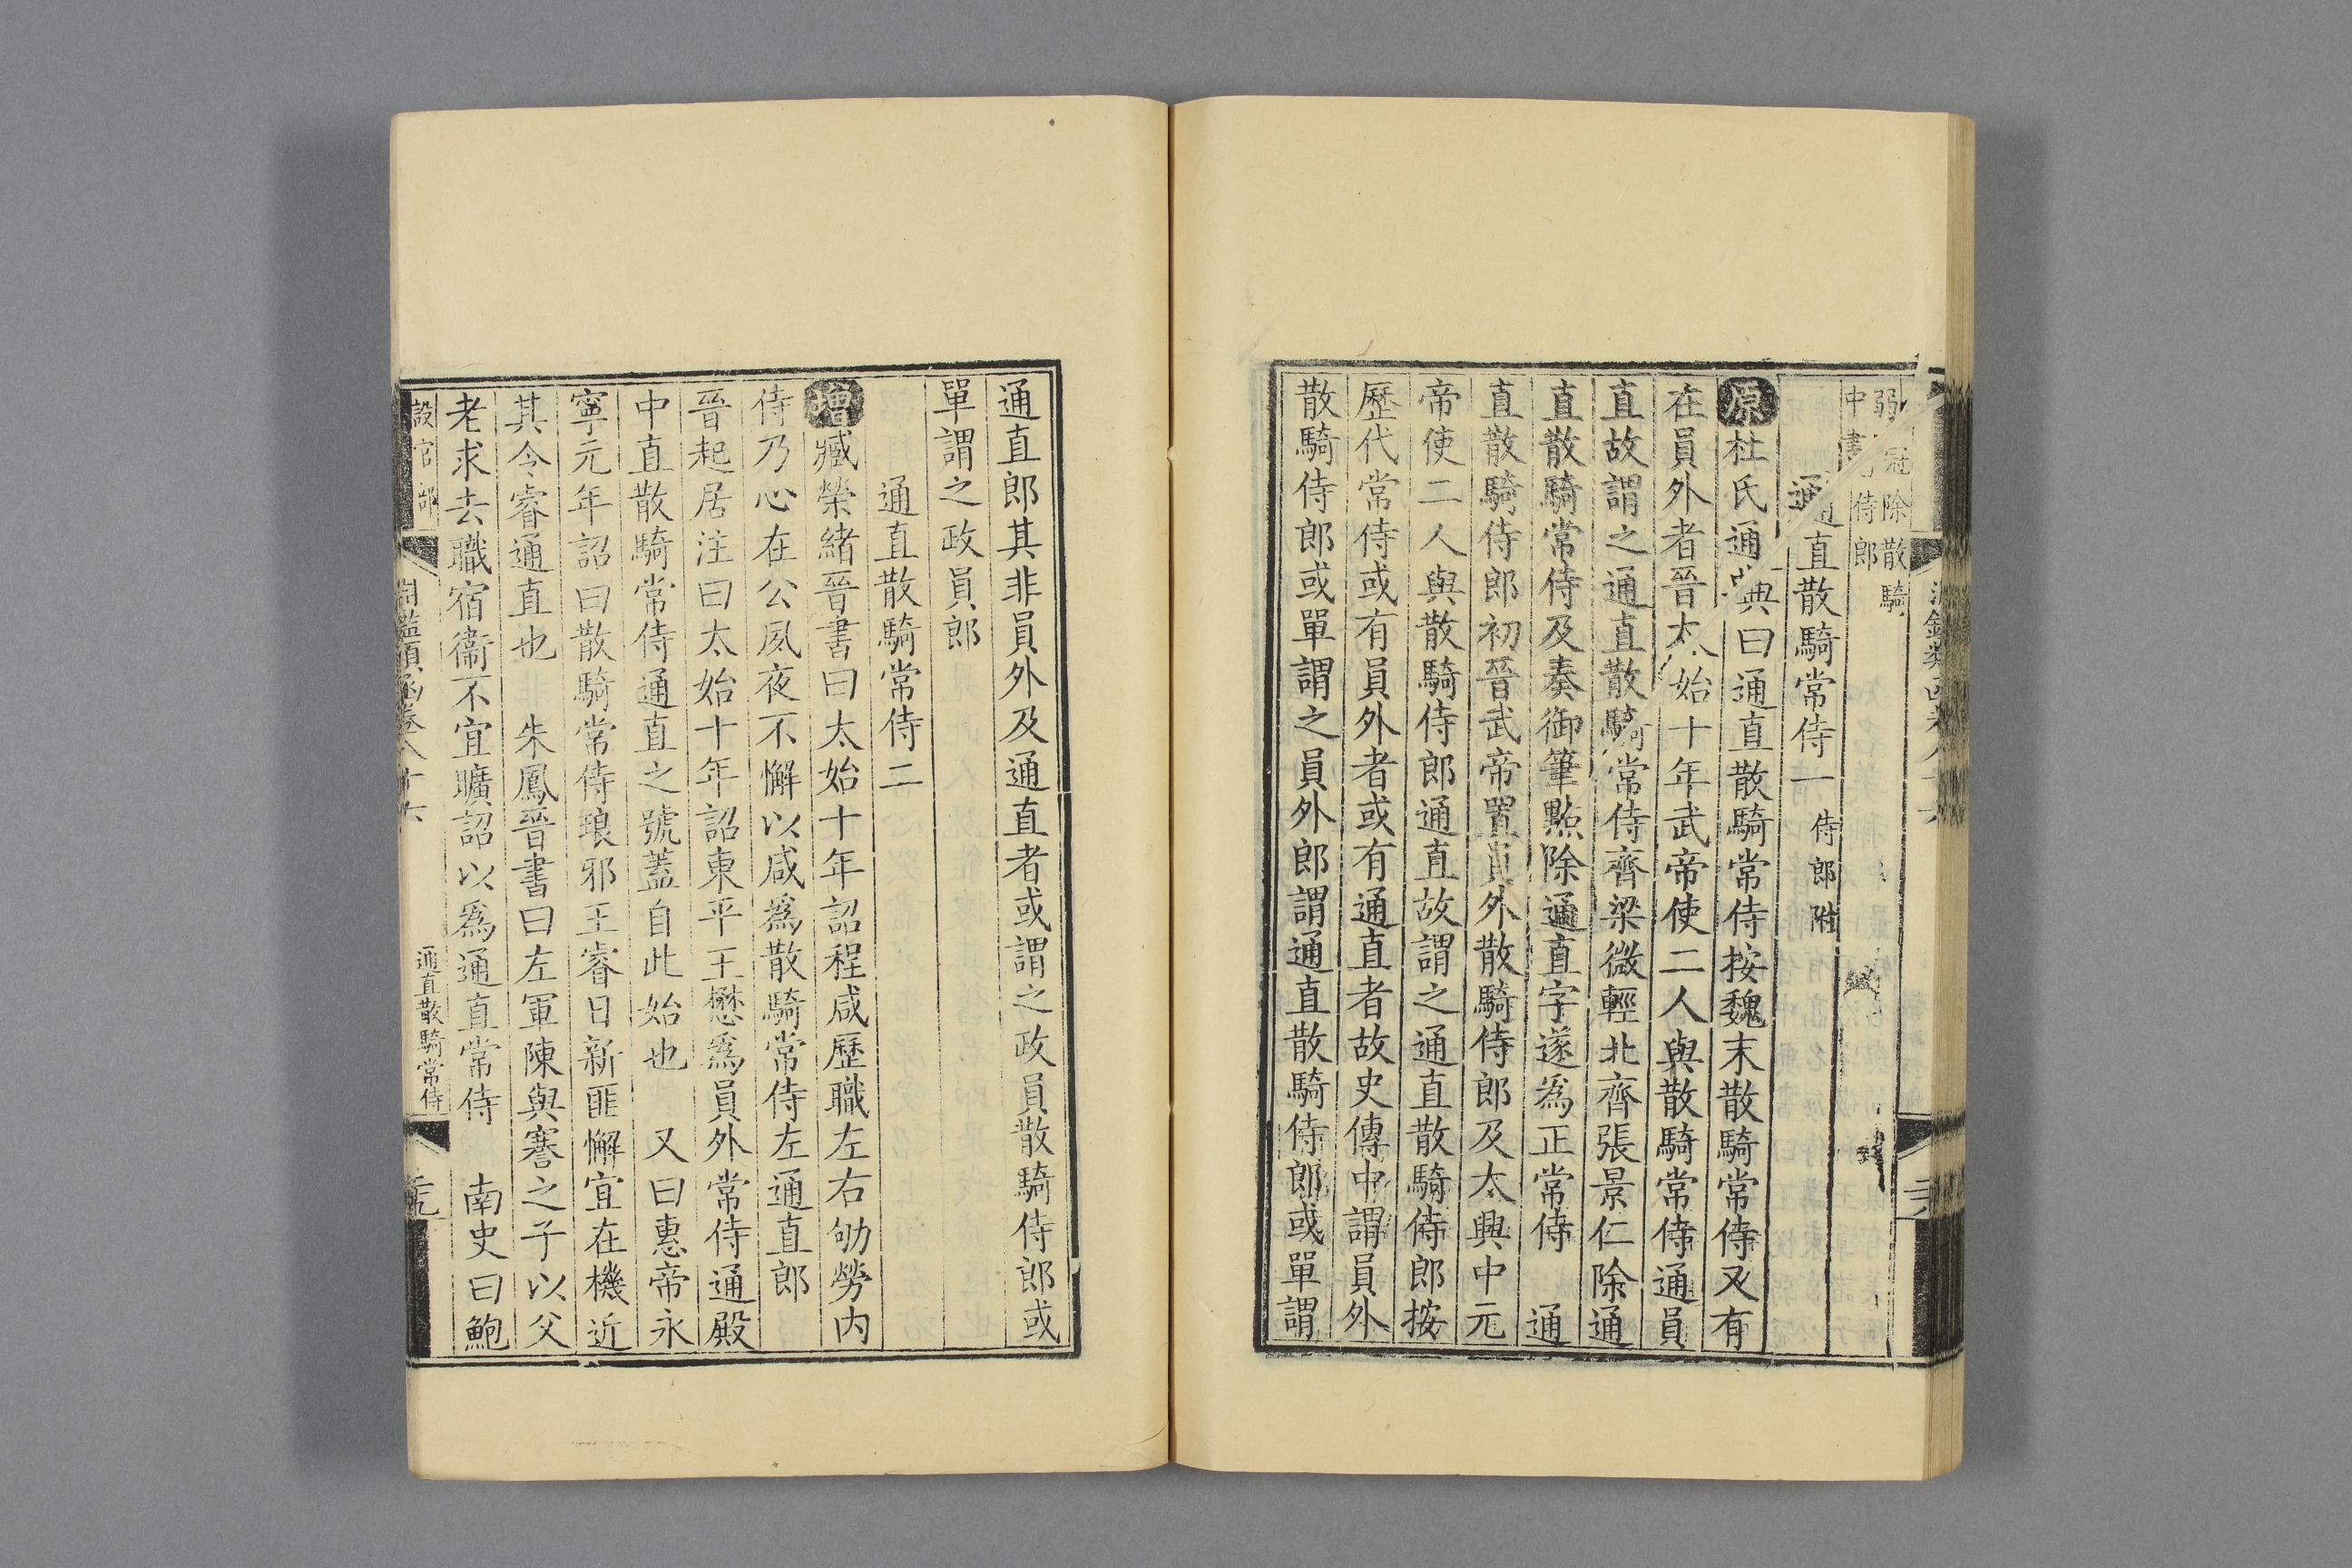 弱冠除散騎
中書侍郎
通直散騎常侍一侍郎附
原杜氏通典曰通直散騎常侍按魏末散騎常侍又有
在員外者晉太始十年武帝使二人與散騎常侍通員
直故謂之通直散騎常侍齊梁微輕北齊張景仁除通
直散騎常侍及奏御筆㸃除通直字遂爲正常侍　通
直散騎侍郎初晉武帝置員外散騎侍郎及太興中元
帝使二人與散騎侍郎通直故謂之通直散騎侍郎按
歷代常侍或有員外者或有通直者故史傳中謂員外
散騎侍郎或單謂之員外郎謂通直散騎侍郎或單謂
通直郎其非員外及通直者或謂之政員散騎侍郎或
單謂之政員郎
通直散騎常侍二
增臧榮緒晉書曰太始十年詔程咸歷職左右劬勞內
侍乃心在公夙夜不懈以咸爲散騎常侍左通直郎
晉起居注曰太始十年詔東平王懋爲員外常侍通殿
中直散騎常侍通直之號蓋自此始也　又曰惠帝永
寧元年詔曰散騎常侍琅邪王睿日新匪懈宜在機近
其令睿通直也　朱鳳晉書曰左軍陳與謇之子以父
老求去職宿衞不宜曠詔以爲通直常侍　南史曰鮑
設官部　淵鑑類函卷八十六　通直散騎常侍